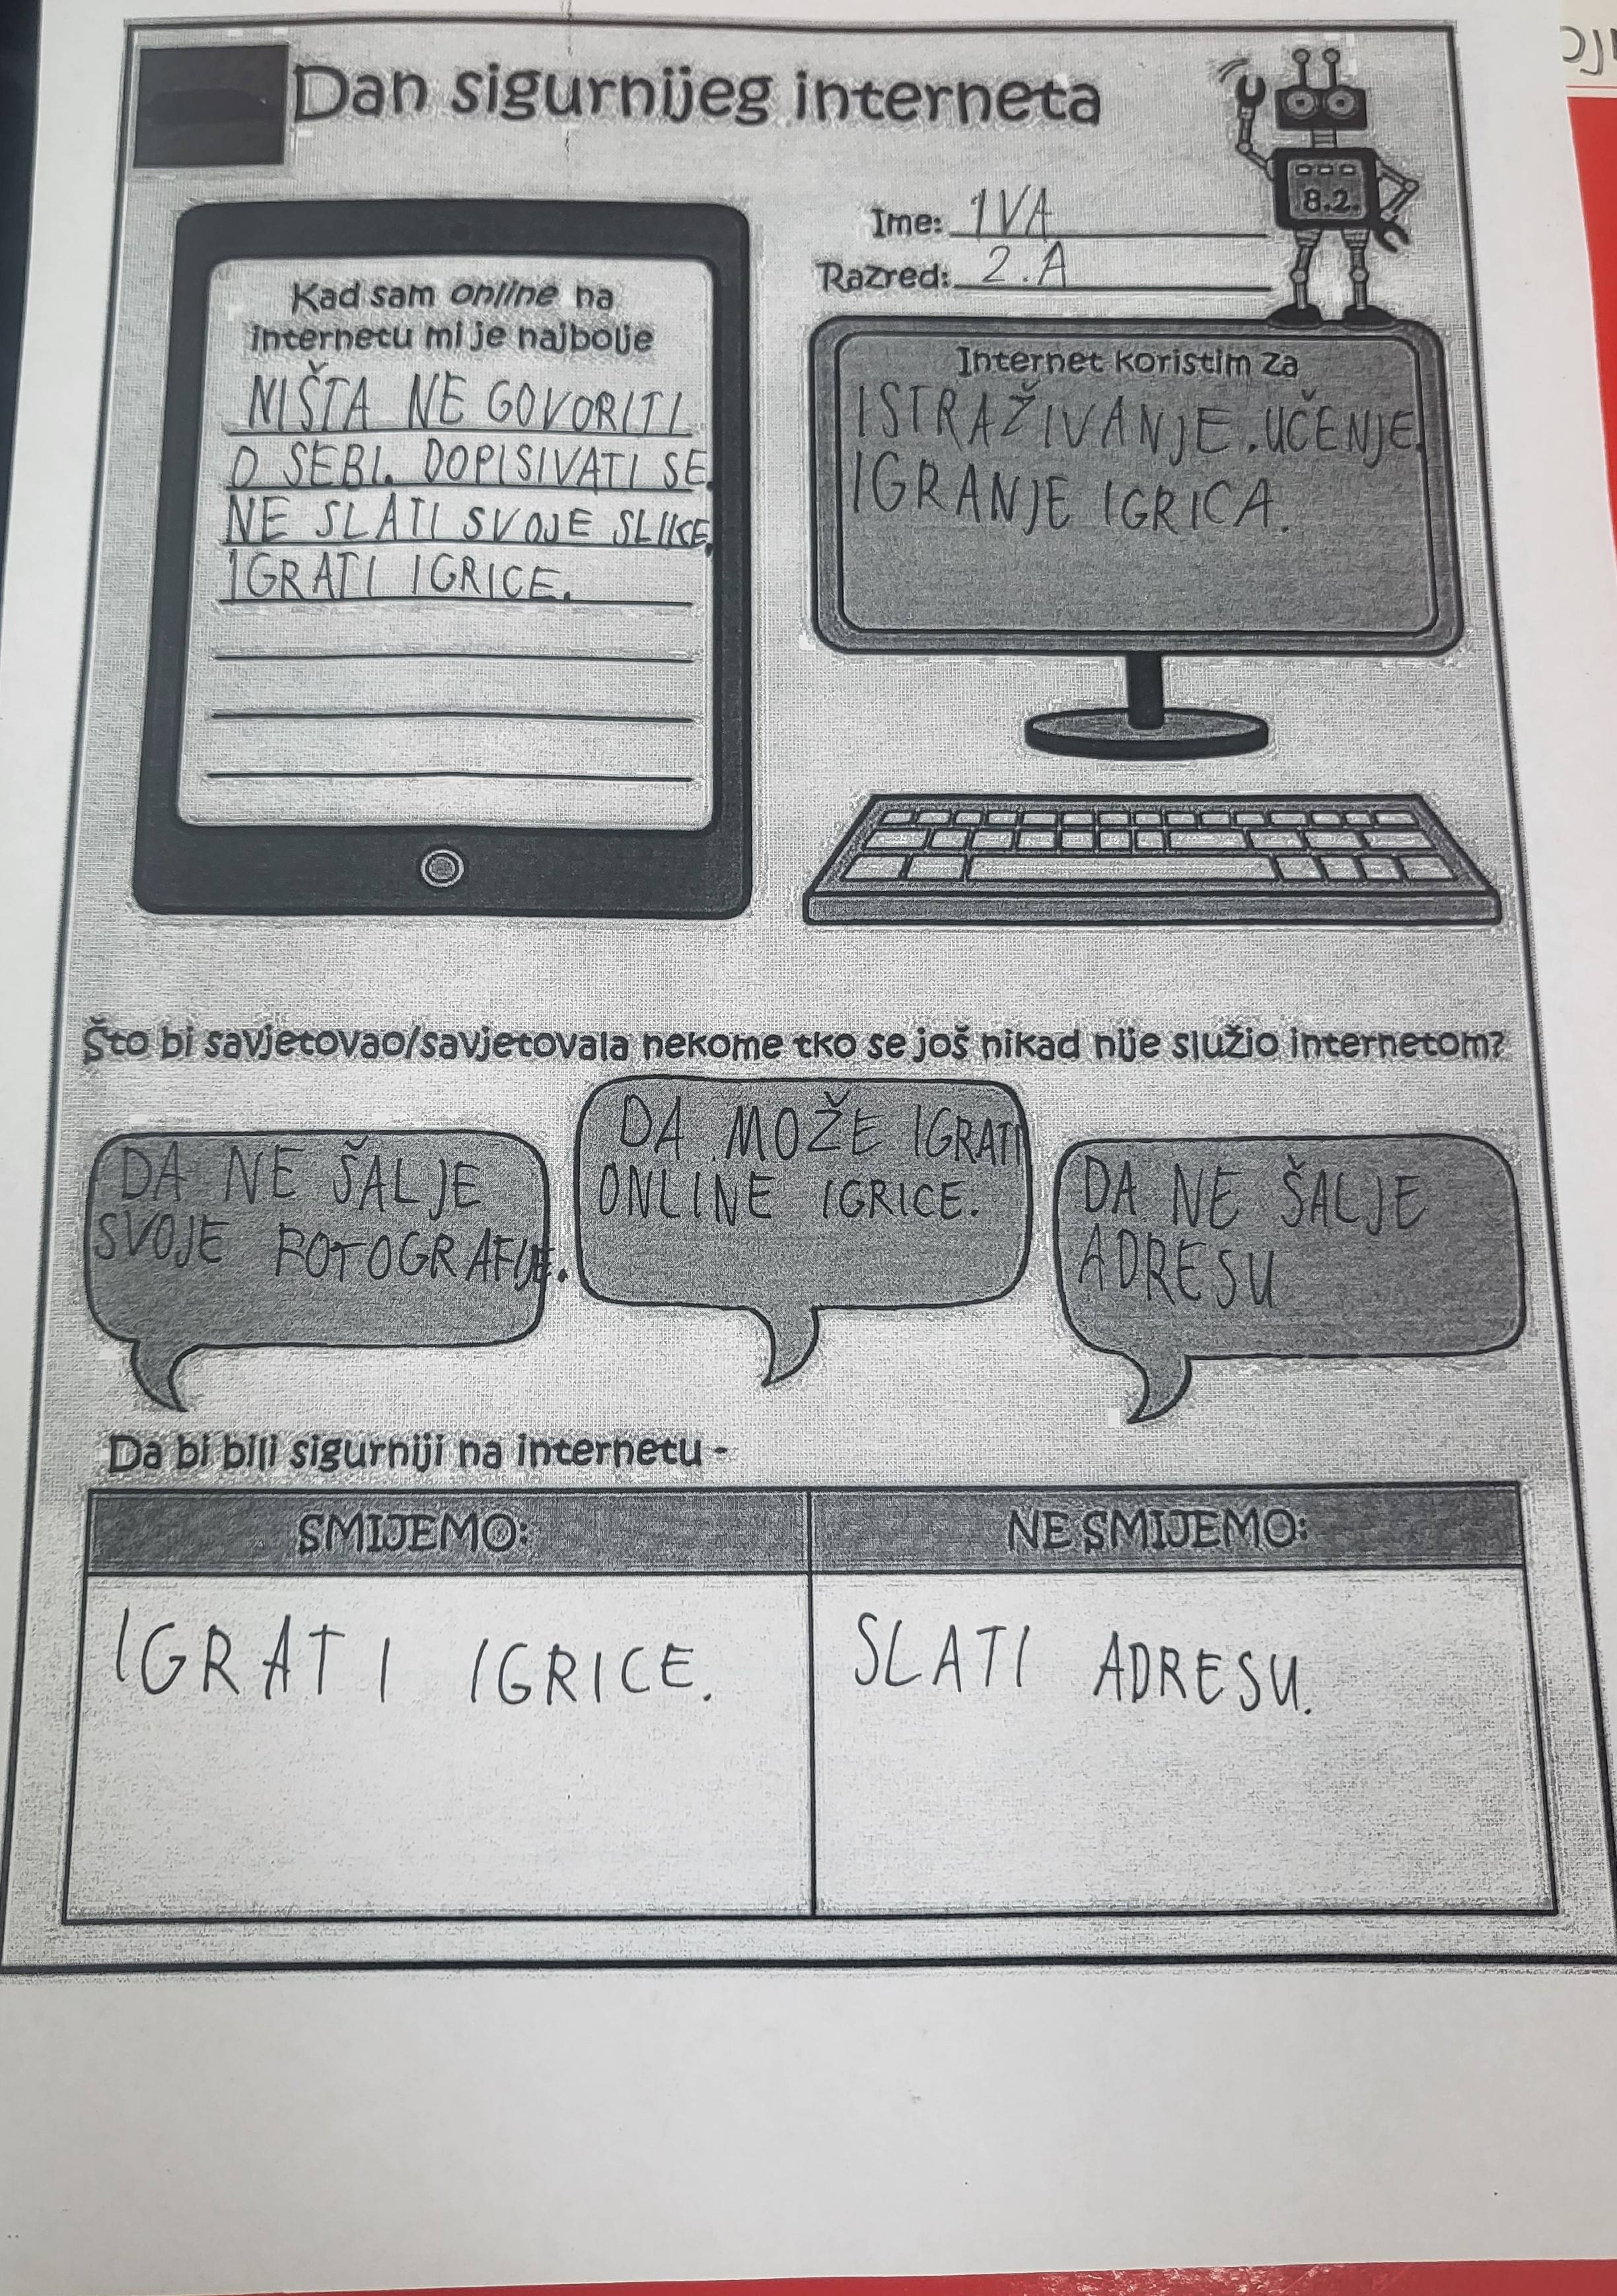 Dan sigurnijeg interneta
8.2.
Ime: IVA
Razred: 2.A
Kad sam online na
internetu mi je najbolje
NIŠTA NE GOVORITI
O SEBI. DOPISIVATI SE.
NE SLATI SVOJE SLIKE.
IGRATI IGRICE.
Internet koristim za
ISTRAŽIVANJE. UČENJE.
IGRANJE IGRICA.
Što bi savjetovao/savjetovala nekome tko se još nikad nije služio internetom?
DA NE ŠALJE
SVOJE FOTOGRAFIJE.
DA MOŽE IGRATI
ONLINE IGRICE.
DA NE ŠALJE
ADRESU
Da bi bili sigurniji na internetu -
SMIJEMO:
NE SMIJEMO:
IGRATI IGRICE.
SLATI ADRESU.